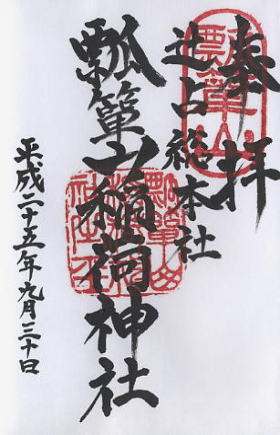 奉拝
辻占総本社
瓢簞山稲荷神社
平成二十五年九月三十日
瓢簞山